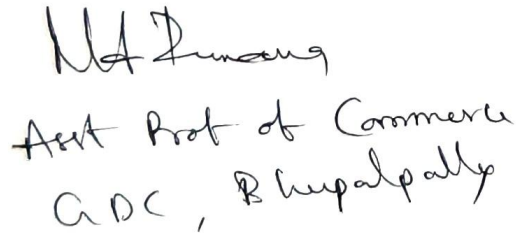 Asst Prof of Commerce
GDC, Bhupalpally